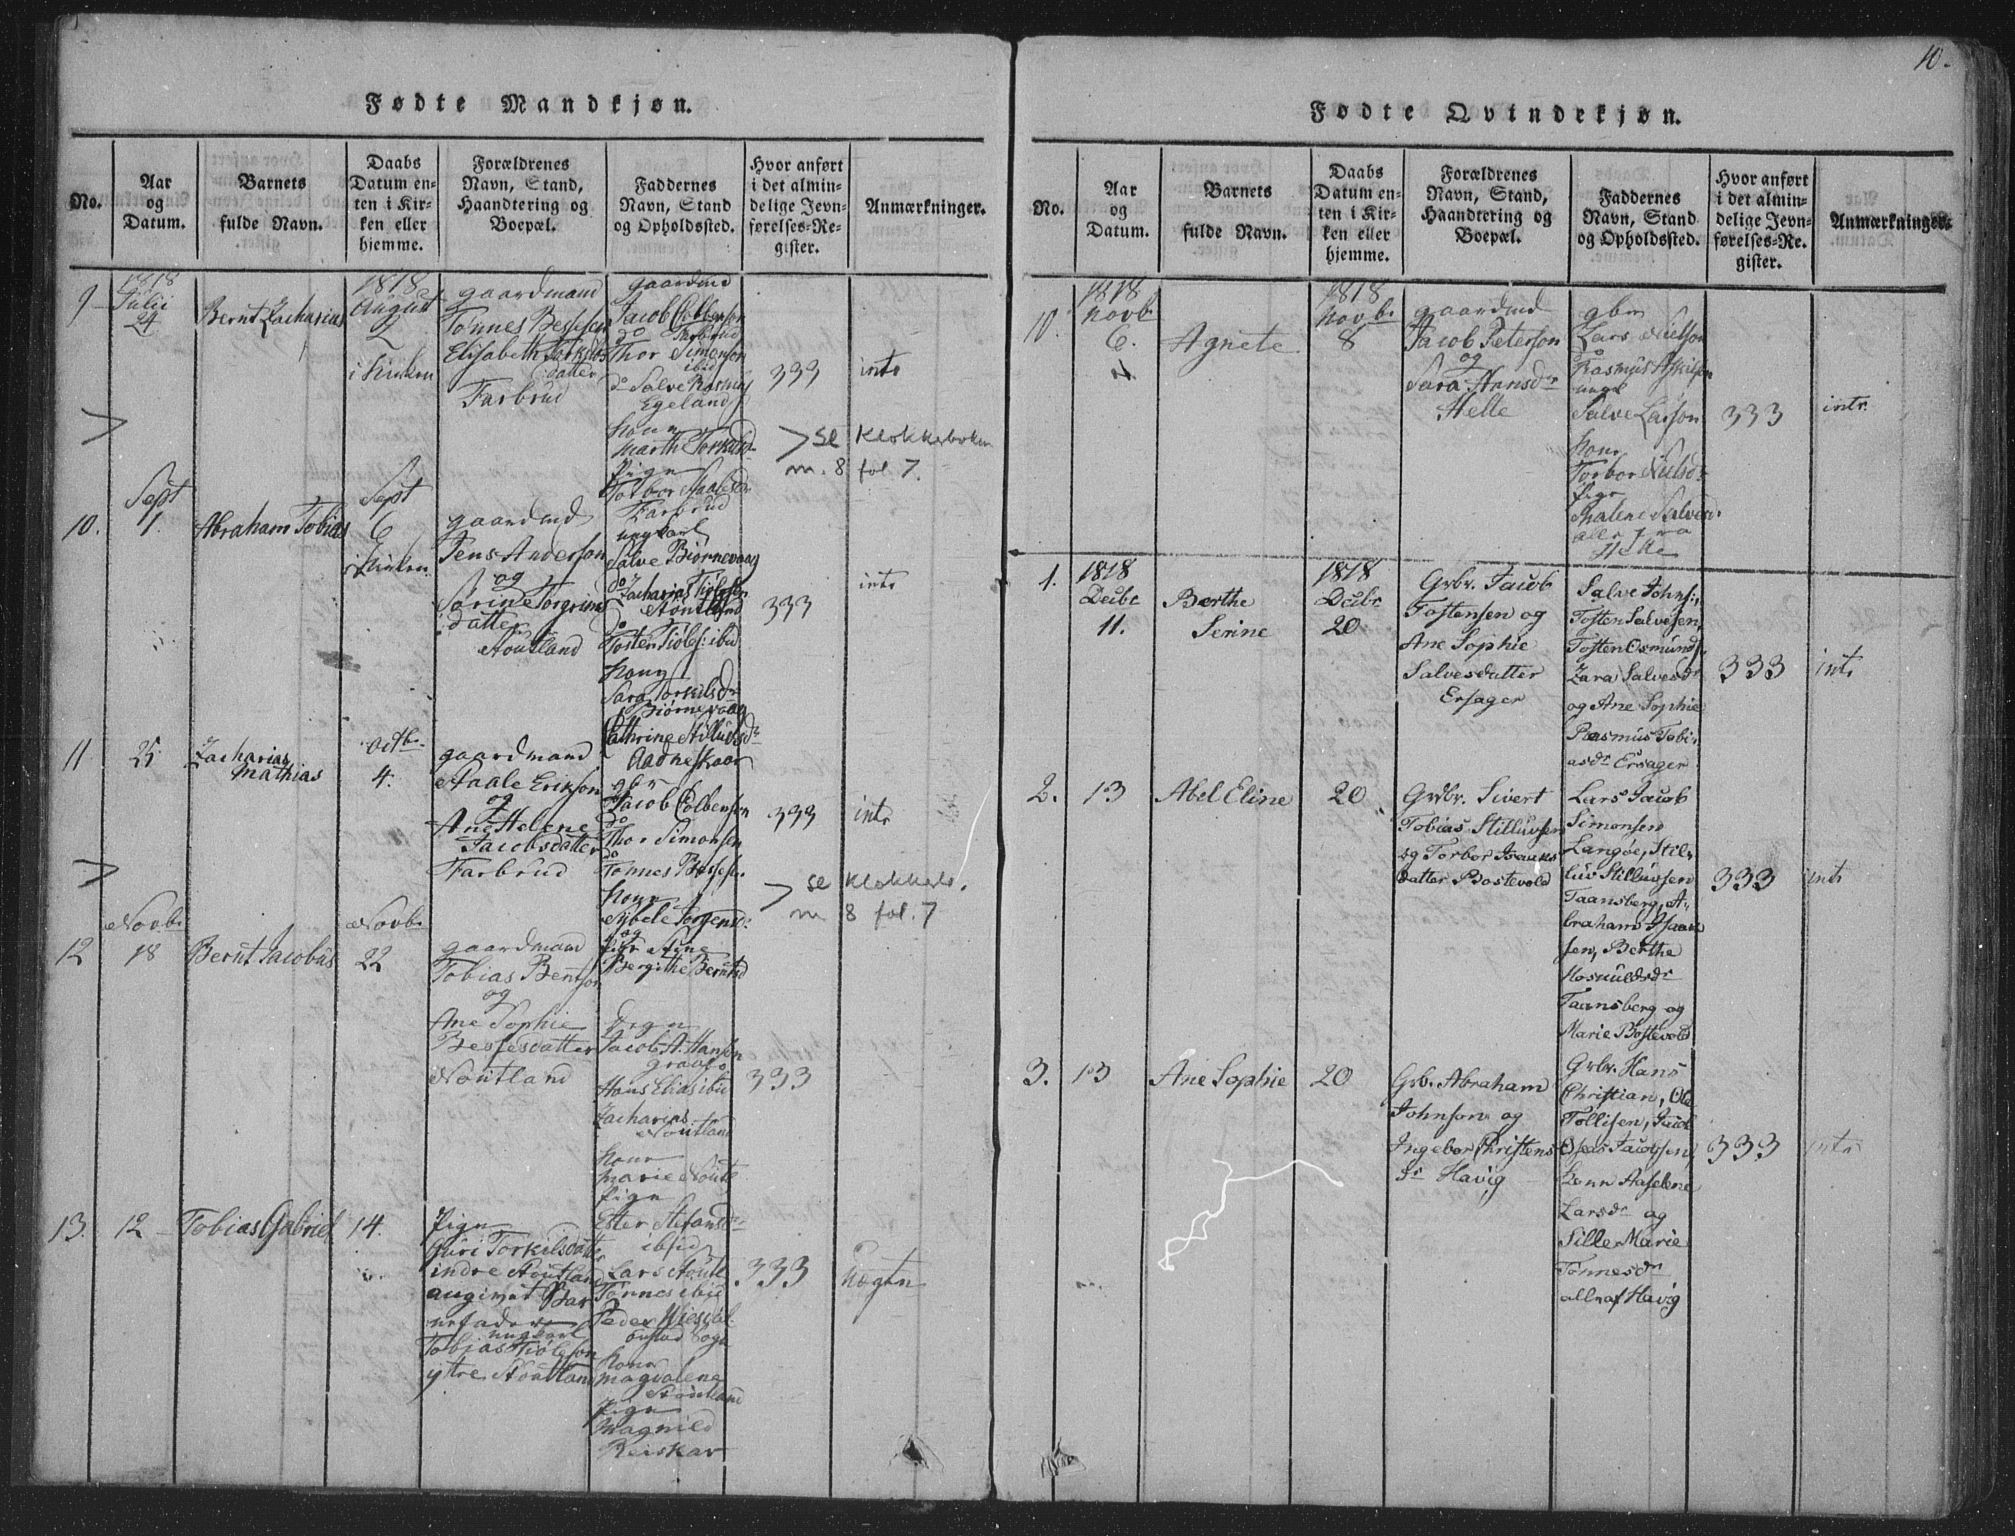 10.
Fødte Mandkjøn.
No.
Aar
og
Datum.
Barnets
fulde Navn.
Daabs
Datum en-
ten i Kir-
ken eller
hjemme.
Forældrenes
Navn, Stand,
Haandtering og
Boepæl.
Faddernes
Navn, Stand
og Opholdssted.
Hvor anført
i det almin-
delige Jevn-
førelses-Re-
gister.
Anmærkninger.
9
1818
Julii
24
Bernt Zacharias
1818
August
2
i Kirken
gaardmand
Tønnes Bessesen
Elisabeth Torkilds
datter
Farbrud
gaardmd
Jacob Colbenson
Farbrud
do
Thor Simonson
ibid
do Salve Rasmus
Egeland
Kone
Marth Torkilsd
Pige
Torbor Aaalesdr
Farbrud
333
intr
> se Klokkeboken
m. 8 fol. 7.
10.
Sept
1.
Abraham Tobias
Sept
6
i Kirken
gaardmd
Jens Anderson
og
Sørine Torgrims
datter
Noutland
ungkarl
Salve Biørnevaag
do
Zacharias Tiølsson
Noutland
do
Tosten Tiøls: ibid
Kone
Sara Torkilsdr
Biørnevaag
Cathrine Stilluvsdr
Aadneskaar
333
intr
11
25
Zacharias
Mathias
Octb.
4.
gaardmand
Aaale Erikson
og
Ane Helene
Jacobsdatter
Farbrud
gbr
Jacob Colbensen
do
Thor Simonsen
do
Tønnes Bessess.
Kone
Sybele Torgensd:
og
Pige Stine
Bergithe Berntsd
333
intr
> se Klokkeb.
m 8 fol. 7
12
Novbr
18
Bernt Jacobus
Novbr
22
gaardmand
Tobias Bentson
og
Ane Sophie
Bessesdatter
Noutland
Degn
Jacob A. Hansen
Hans Elias ibid
Zacharias
Noutland
Kone
Marie Noutl
Pige
Ester Stefansdr
ibid
333
13.
12
Tobias Gabriel
14.
Pige
Guri Torkilsdatt
indre Noutland
angivet Bar
nefader
ungkarl
Tobias Tiølsson
yttre Noutland
Lars Noutl
Tønnes ibid
Peder
Sogn
Kone
Magdalene
Noutland
Pige
Magnild
Reiskar
333
uægte
Fødte Qvindekjøn.
No.
Aar
og
Datum.
Barnets
fulde Navn.
Daabs
Datum en-
ten i Kir-
ken eller
hjemme.
Forældrenes
Navn, Stand,
Haandtering og
Boepæl.
Faddernes
Navn, Stand
og Opholdssted.
Hvor anført
i det almin-
delige Jevn-
førelses-Re-
gister.
Anmærkninger.
10.
1818
Novb
6.
Agnete
1818
Novbr
8
gaardmd
Jacob Peterson
og
Sara Hansdr
Helle
gbr
Lars Nielson
do
Rasmus Askilsen
ungk
Salve Larson
Kone
Torbor Nielsdr
Pige
Malene Salvesd.
alle fra
Helle
333
intr.
1.
1818
Decbr
11.
Berthe
Serine
1818
Decbr
20
Grbr. Jacob
Tostensen og
Ane Sophie
Salvesdatter
Ersager
Salve Johns:,
Tosten Salvesen,
Tosten Osmunds.
Zara Salvesdr
og Ane Sophie
Rasmus Tobi-
asdr Ersager
333
intr
2.
13
Abel Eline
20
Grdbr. Sivert
Tobias Stilluvsen
og Torbor Isaaks
datter Bostevold
Lars Jacob
Simonsen
Langøe, Stil-
luv Stilluvsen
Taansberg, A-
braham Isaak
sen, Berthe
Hosvuldsdr
Taansberg og
Marie Bostevold
333
intr
3.
13
Ane Sophie
20
Grb. Abraham
Johnson og
Ingebor Christens
dr Havig
Grbr. Hans
Christian, Ole
Tollisen, Jacob
Oseas Jacobsen,
Kone Aaselene
Larsdr og
Sille Marie
Tønnesdr
alle af Havig
333
intr